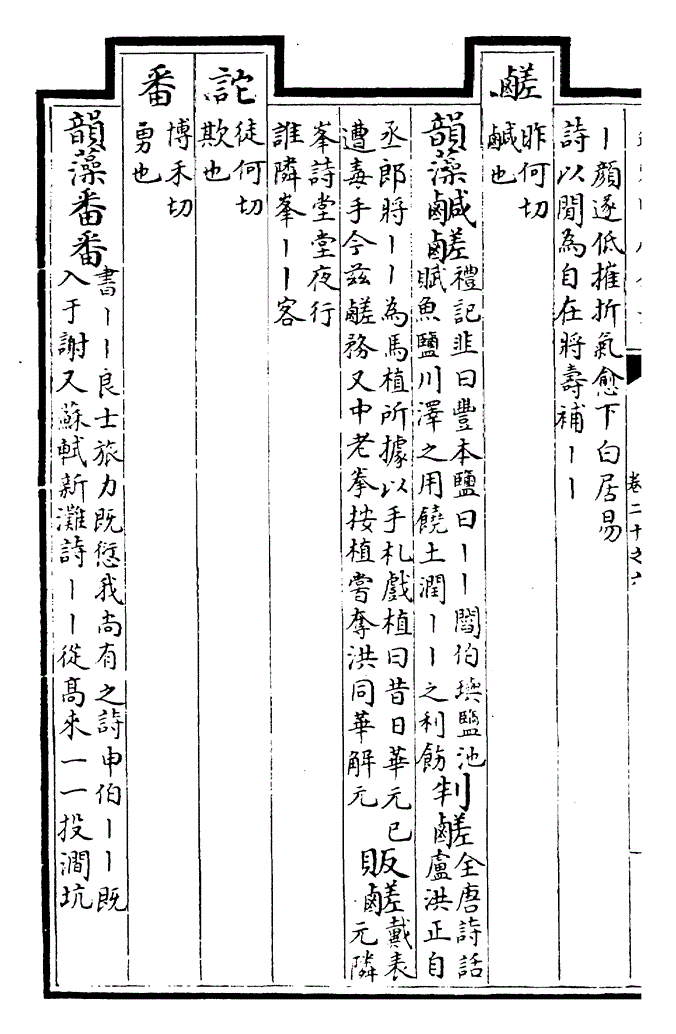 卷二十之六
丨顔遂低摧折氣愈下白居易
詩以閒為自在將壽補丨丨
鹺
昨何切
鹹也
韻藻鹹鹺
禮記韭曰豐本鹽曰丨丨閻伯璵鹽池
賦魚鹽川澤之用饒土潤丨丨之利飭
判鹺
全唐詩話
盧洪正自
丞郎將丨丨為馬植所據以手札戲植曰昔日華元已
遭毒手今兹鹺務又中老拳按植嘗奪洪同華解元
販鹺
戴表
元隣
峯詩堂堂夜行
誰隣峯丨丨客
詑
徒何切
欺也
番
博禾切
勇也
韻藻番番
書丨丨良士旅力既愆我尚有之詩申伯丨丨既
入于謝又蘇軾新灘詩丨丨從髙來一一投澗坑